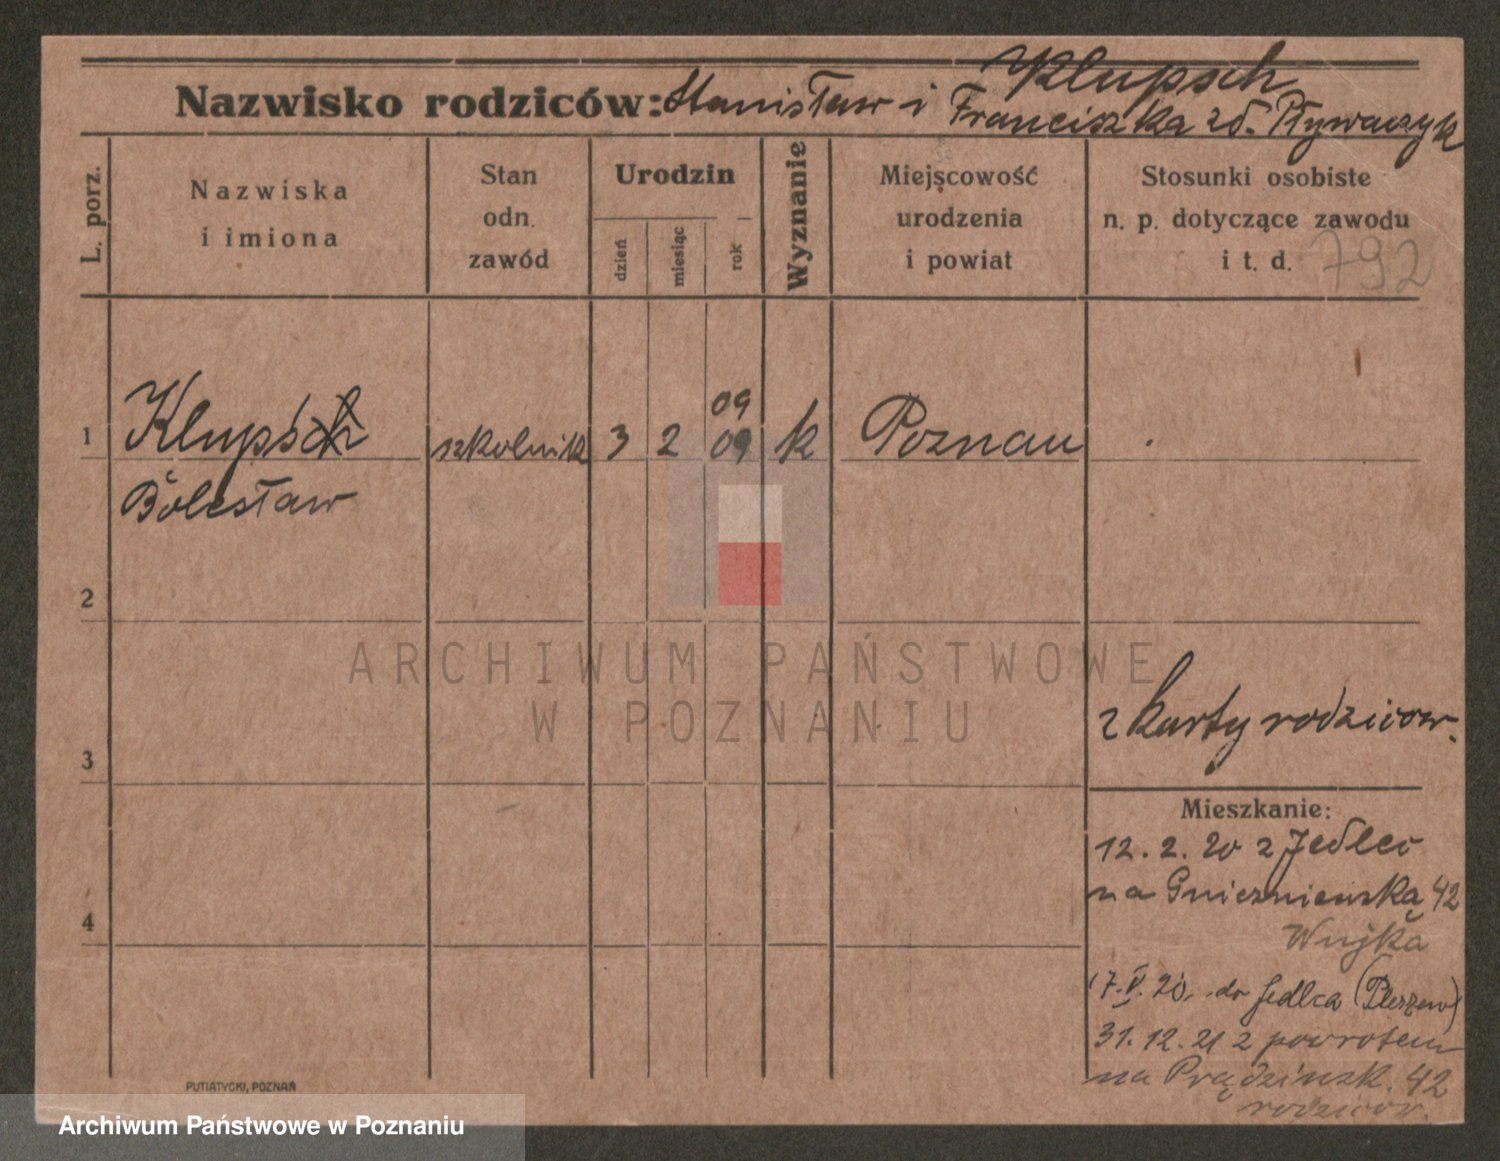 Klupsch
Nazwisko rodziców: Stanisław i Franciszka zd. Pływaczyk
L. porz.
Nazwiska
i imiona
Stan
odn.
zawód
Urodzin
dzień
miesiąc
rok
Wyznanie
Miejscowość
urodzenia
i powiat
Stosunki osobiste
n. p. dotyczące zawodu
i t. d.
792
09
1 Klupsch szkolnik 3 2 09 k Poznań
Bolesław
2
3
z karty rodziców.
Mieszkanie:
12. 2. 20 z Jedlec
na Gnieznieńska 42
Wujka
17. V. 20. do Jedlca (Pleszew)
31. 12. 21 z powrotem
na Prądzińsk. 42
rodziców.
4
PUTIATYCKI, POZNAŃ
ARCHIWUM PAŃSTWOWE
W POZNANIU
Archiwum Państwowe w Poznaniu